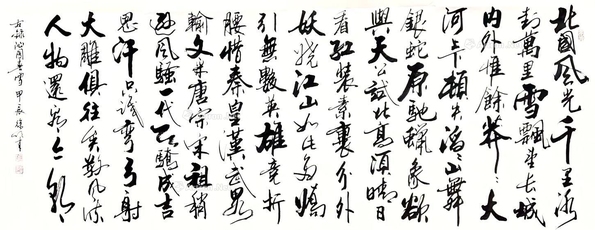 北國風光千里冰
封萬里雪飄望長城
内外惟餘莽〻大
河上下頓失滔〻舞
銀蛇原馳蠟象欲
與天公試比高須晴日
看紅裝素裹分外
妖嬈江山如此多嬌
引無數英雄竞折
腰惜秦皇漢武略
輸文采唐宗宋祖稍
遜風騷一代天驕成吉
思汗只識彎弓射
大雕俱往矣數風流
人物還看今朝
沁園春雪甲辰